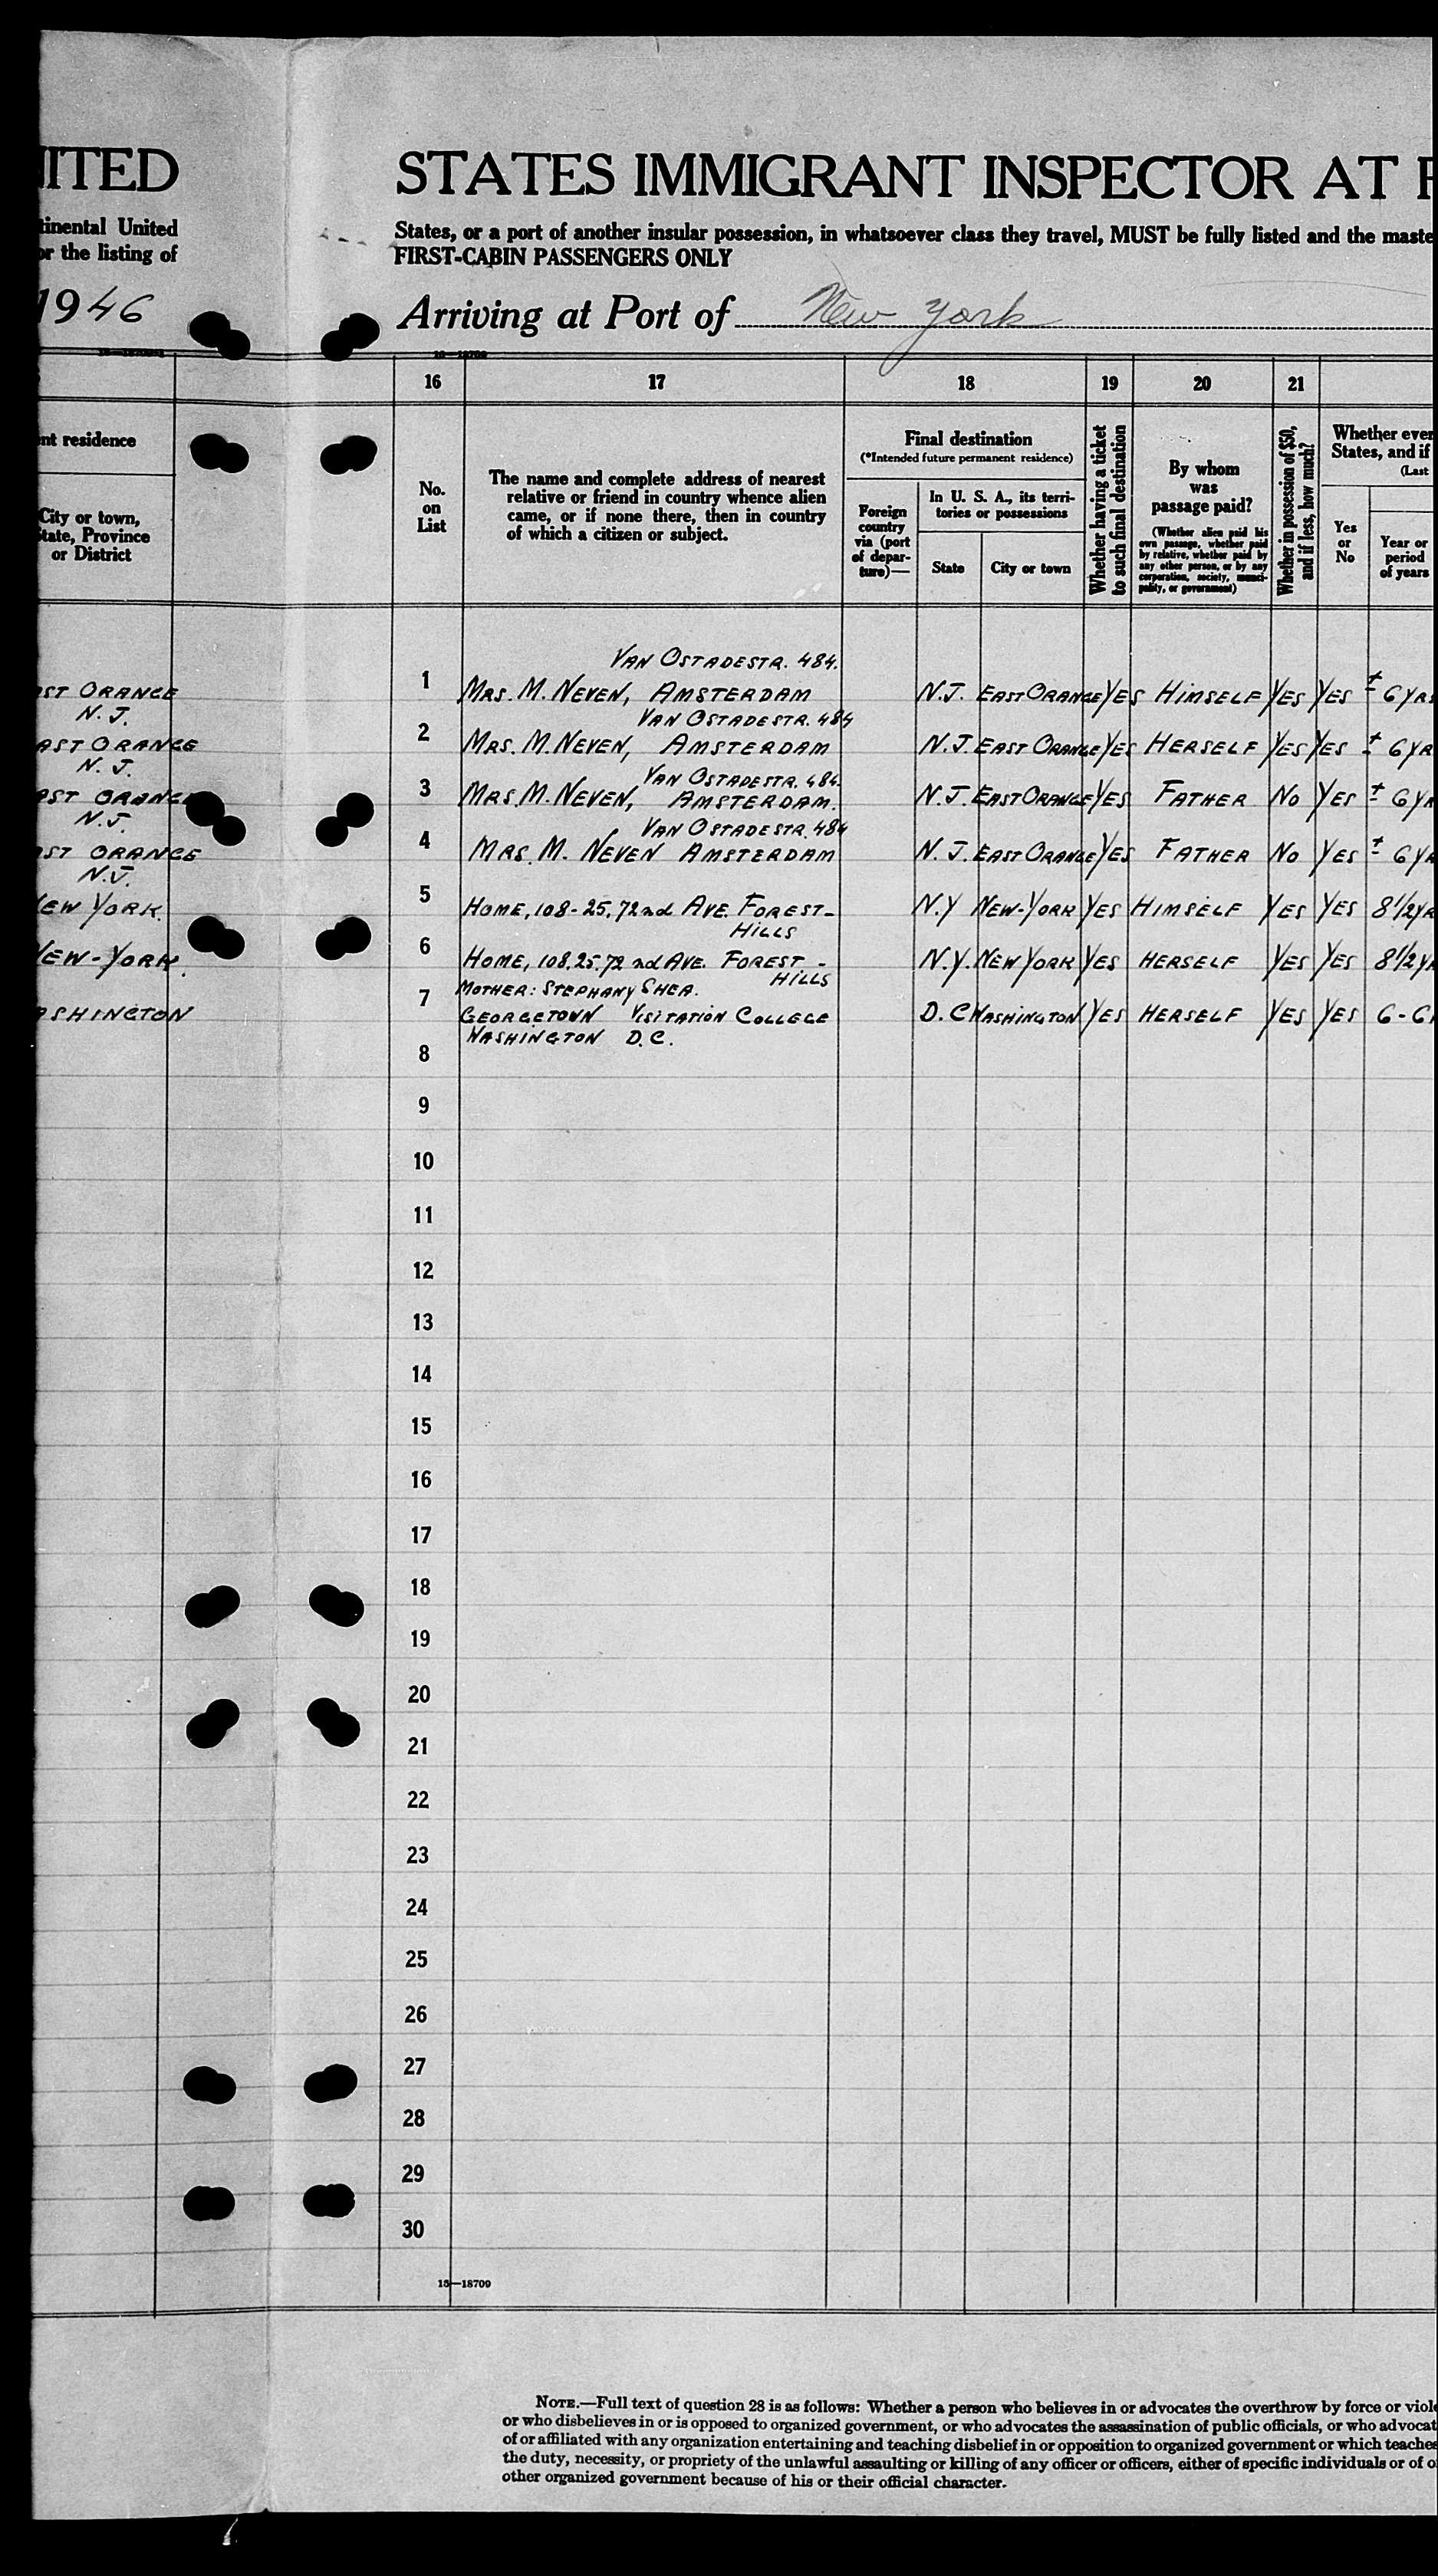 ITED
tinental United
or the listing of
1946
nt residence
City or town,
State, Province
or District
ST ORANGE
N.J.
AST ORANGE
N.J.
AST ORANGE
N.J.
ST ORANGE
N.J.
EW YORK.
EW-YORK.
ASHINGTON
STATES IMMIGRANT INSPECTOR AT P
States, or a port of another insular possession, in whatsoever class they travel, MUST be fully listed and the maste
FIRST-CABIN PASSENGERS ONLY
Arriving at Port of New York
16—18709
16 17 18 19 20 21
No.
on
List
The name and complete address of nearest
relative or friend in country whence alien
came, or if none there, then in country
of which a citizen or subject.
Final destination
(*Intended future permanent residence)
Foreign
country
via (port
of depar-
ture)—
In U. S. A., its terri-
tories or possessions
State
City or town
Whether having a ticket
to such final destination
By whom
was
passage paid?
(Whether alien paid his
own passage, whether paid
by relative, whether paid by
any other person, or by any
corporation, society, munici-
pality, or government)
Whether in possession of $50,
and if less, how much?
Whether ever
States, and if
(Last
Yes
or
No
Year or
period
of years
VAN OSTADESTR. 484.
1 MRS. M. NEVEN, AMSTERDAM N.J. EAST ORANGE YES HIMSELF YES YES ± 6 YRS
VAN OSTADESTR. 484
2 MRS. M. NEVEN, AMSTERDAM N.J. EAST ORANGE YES HERSELF YES YES ± 6 YR
VAN OSTADESTR. 484.
3 MRS. M. NEVEN, AMSTERDAM. N.J. EAST ORANGE YES FATHER NO YES ± 6 YR
VAN OSTADESTR. 484
4 MRS. M. NEVEN AMSTERDAM N.J. EAST ORANGE YES FATHER NO YES ± 6 Y
5 HOME, 108-25, 72nd AVE. FOREST- N.Y NEW-YORK YES HIMSELF YES YES 8 1/2 YR
HILLS
6 HOME, 108.25.72nd AVE. FOREST- N.Y. NEW YORK YES HERSELF YES YES 8 1/2 Y
HILLS
MOTHER: STEPHANY SHEA.
7 GEORGETOWN VISITATION COLLEGE D.C WASHINGTON YES HERSELF YES YES 6-6
WASHINGTON D.C.
8
9
10
11
12
13
14
15
16
17
18
19
20
21
22
23
24
25
26
27
28
29
30
16—18709
NOTE.—Full text of question 28 is as follows: Whether a person who believes in or advocates the overthrow by force or viol
or who disbelieves in or is opposed to organized government, or who advocates the assassination of public officials, or who advocat
of or affiliated with any organization entertaining and teaching disbelief in or opposition to organized government or which teaches
the duty, necessity, or propriety of the unlawful assaulting or killing of any officer or officers, either of specific individuals or of o
other organized government because of his or their official character.